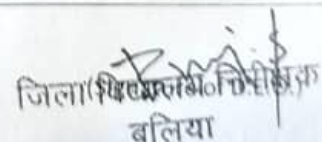 जिला विद्यालय निरीक्षक
बलिया